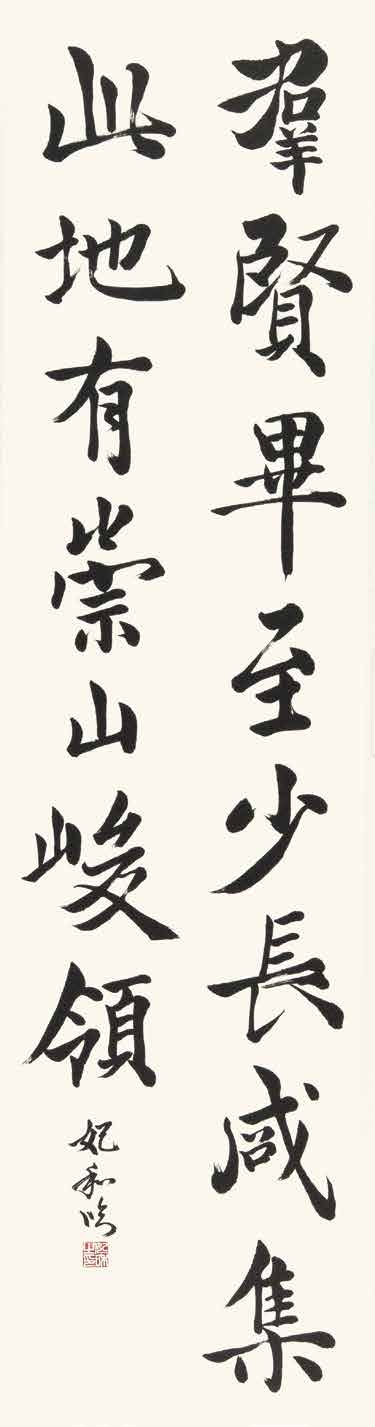 羣賢畢至少長咸集
此地有崇山峻領
妃和臨